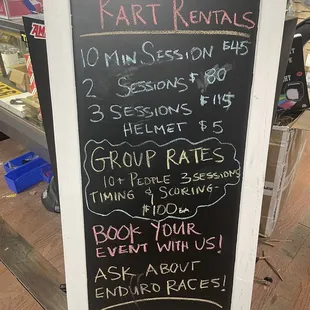 KART RENTALS
10 MIN SESSION $45
2 SESSIONS $80
3 SESSIONS $115
HELMET $5
GROUP RATES
10+ PEOPLE 3 SESSIONS
TIMING & SCORING-
$100 EA
BOOK YOUR
EVENT WITH US!
ASK ABOUT
ENDURO RACES!